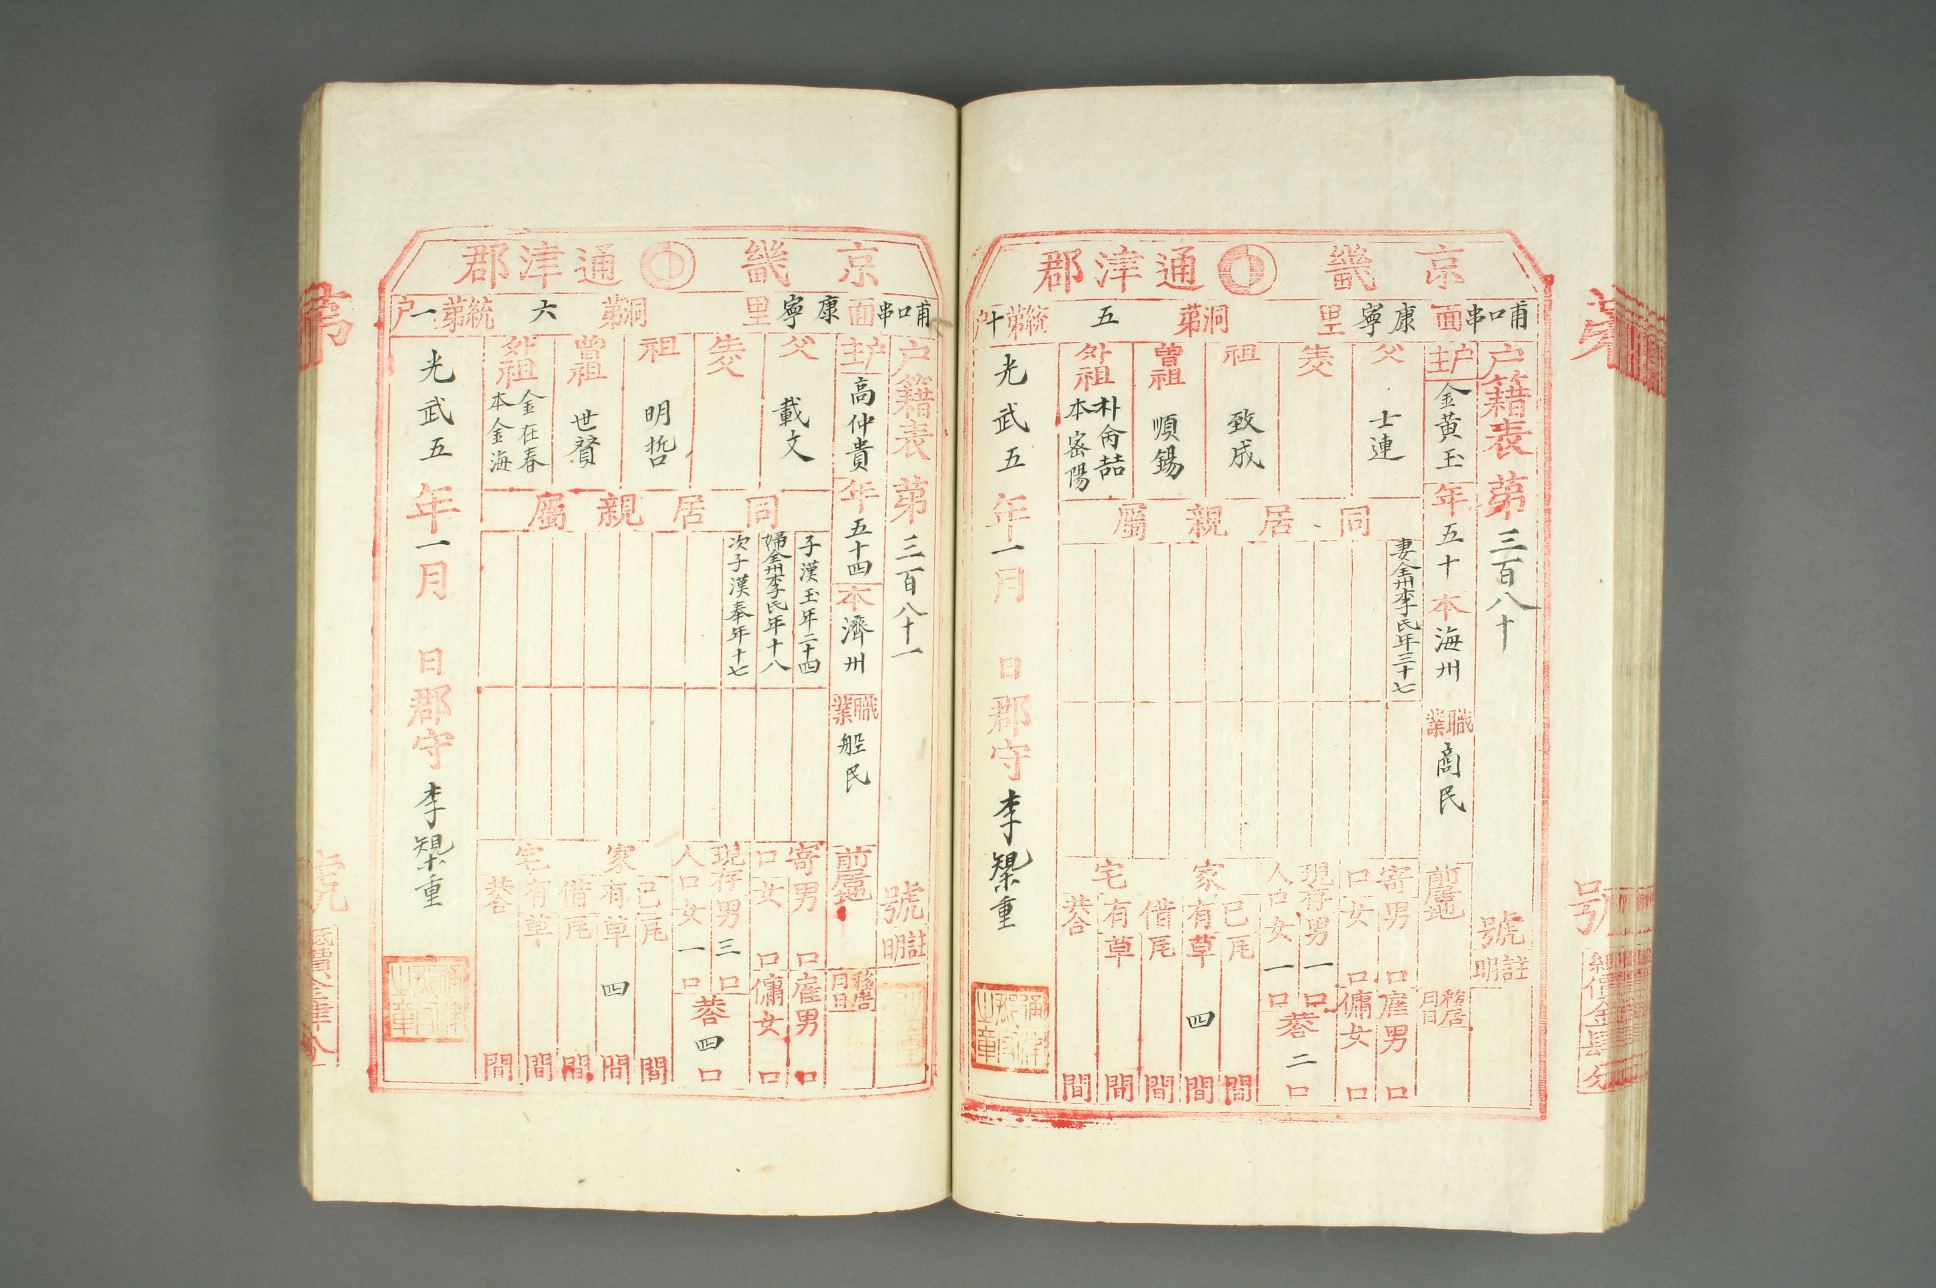 京畿 通津郡
哺口串面 康寧里 第洞 五 第統 十戶
戶籍表 第三百八十 號 註明
戶主 金黃玉 年五十 本海州 職業 商民 前居地 移居月日
父 士連
生父
祖 致成
曾祖 順錫
外祖 朴尙喆 本密陽
同居親屬
妻全州李氏年三十七
寄口 男 口 女 口
雇男 口 傭女 口
現存人口 男一口 女一口 共二口
家宅 己有 瓦 間 草四間
借有 瓦 間 草 間
共 間
光武五年一月 日 郡守 李
京畿 通津郡
哺口串面 康寧里 第洞 六 第統 一戶
戶籍表 第三百八十一 號 註明
戶主 高仲貴 年五十四 本濟州 職業 船民 前居地 移居月日
父 載文
生父
祖 明哲
曾祖 世賢
外祖 金在春 本金海
同居親屬
子漢玉年二十四
婦全州李氏年十八
次子漢奉年十七
寄口 男 口 女 口
雇男 口 傭女 口
現存人口 男三口 女一口 共四口
家宅 己有 瓦 間 草四間
借有 瓦 間 草 間
共 間
光武五年一月 日 郡守 李